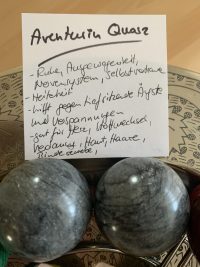 Aventurin Quarz
- Ruhe, Ausgewogenheit,
Nervensystem, Selbstvertrauen
- Heiterkeit
- hilft gegen tiefsitzende Ängste
und Verspannungen
- gut für Herz, Stoffwechsel,
Haut, Haare,
Bindegewebe,